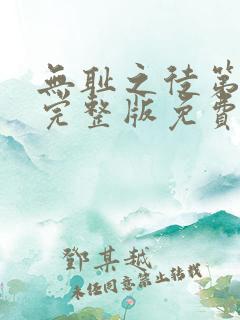 無耻之徒第
完整版免費
鄧某越
未经同意禁止转载